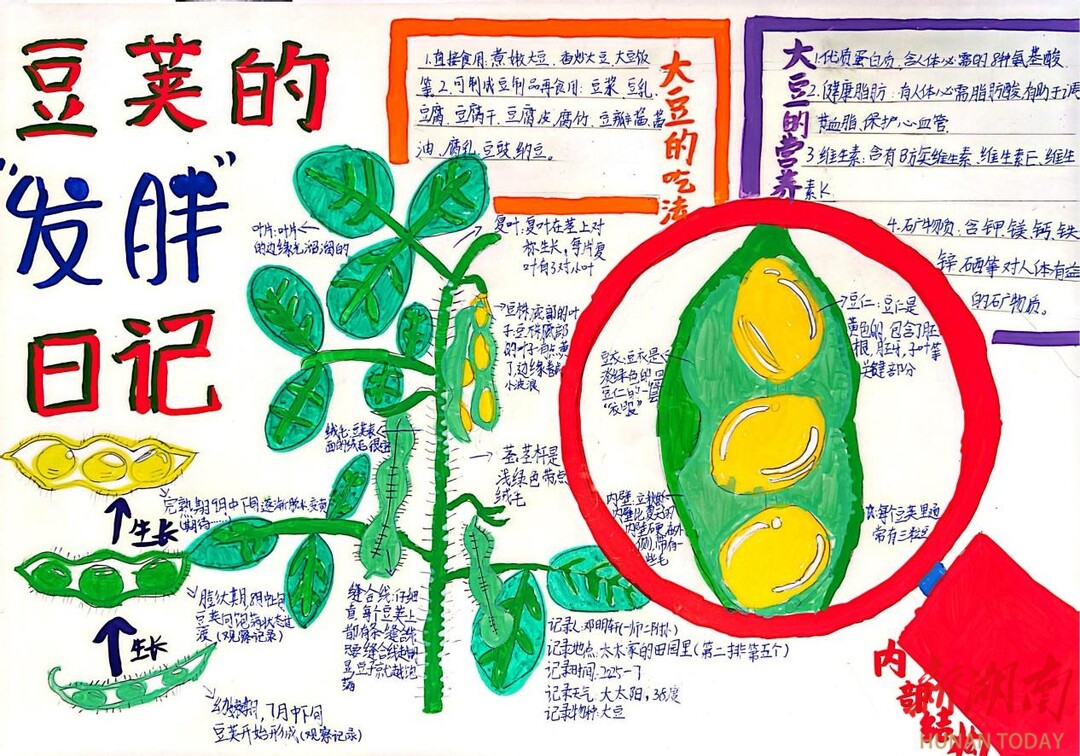 豆荚的
"发胖"
日记
1.直接食用:煮嫩大豆、香炒大豆、大豆饭
等。2.可制成豆制品再食用:豆浆、豆乳、
豆腐、豆腐干、豆腐皮、腐竹、豆瓣酱、酱
油、腐乳、豆豉、纳豆。
大豆的吃法
大豆的营养
1.优质蛋白质,含人体必需的8种氨基酸.
2.健康脂肪:有人体必需脂肪酸,有助于调
节血脂,保护心血管.
3.维生素:含有B族维生素、维生素E、维生
素K
4.矿物质:含钾、镁、钙、铁
锌、硒等对人体有益
的矿物质。
叶片:叶片
的边缘毛溜溜的
复叶:复叶在茎上对
称生长,每片复
叶有3对小叶
豆株底部的叶
子:豆株底部
的叶子
了,边缘
小波浪
绒毛:豆荚表
面的绒毛很
茎:茎杆是
浅绿色带点
绒毛
豆衣:豆衣是
浅绿色的
豆仁的一层
豆仁:豆仁是
黄色的,包含了胚
根,胚芽,子叶等
关键部分
内壁:
每个豆荚里通
常有三粒豆
完熟期9月中下旬逐渐脱水变黄
(期待……)
生长
膨大期,8月中旬
豆荚向饱满状态过
渡(观察记录)
生长
幼嫩期,7月中下旬
豆荚开始形成(观察记录)
缝合线:仔细
看每个豆荚上
都有条缝合线
记录人:邓明轩(一师二附小)
记录地点:大木家的田园里(第二排第五个)
记录时间:2025-7
记录天气:大太阳,38度
记录物种:大豆
内部结构
新湖南
HUNAN TODAY